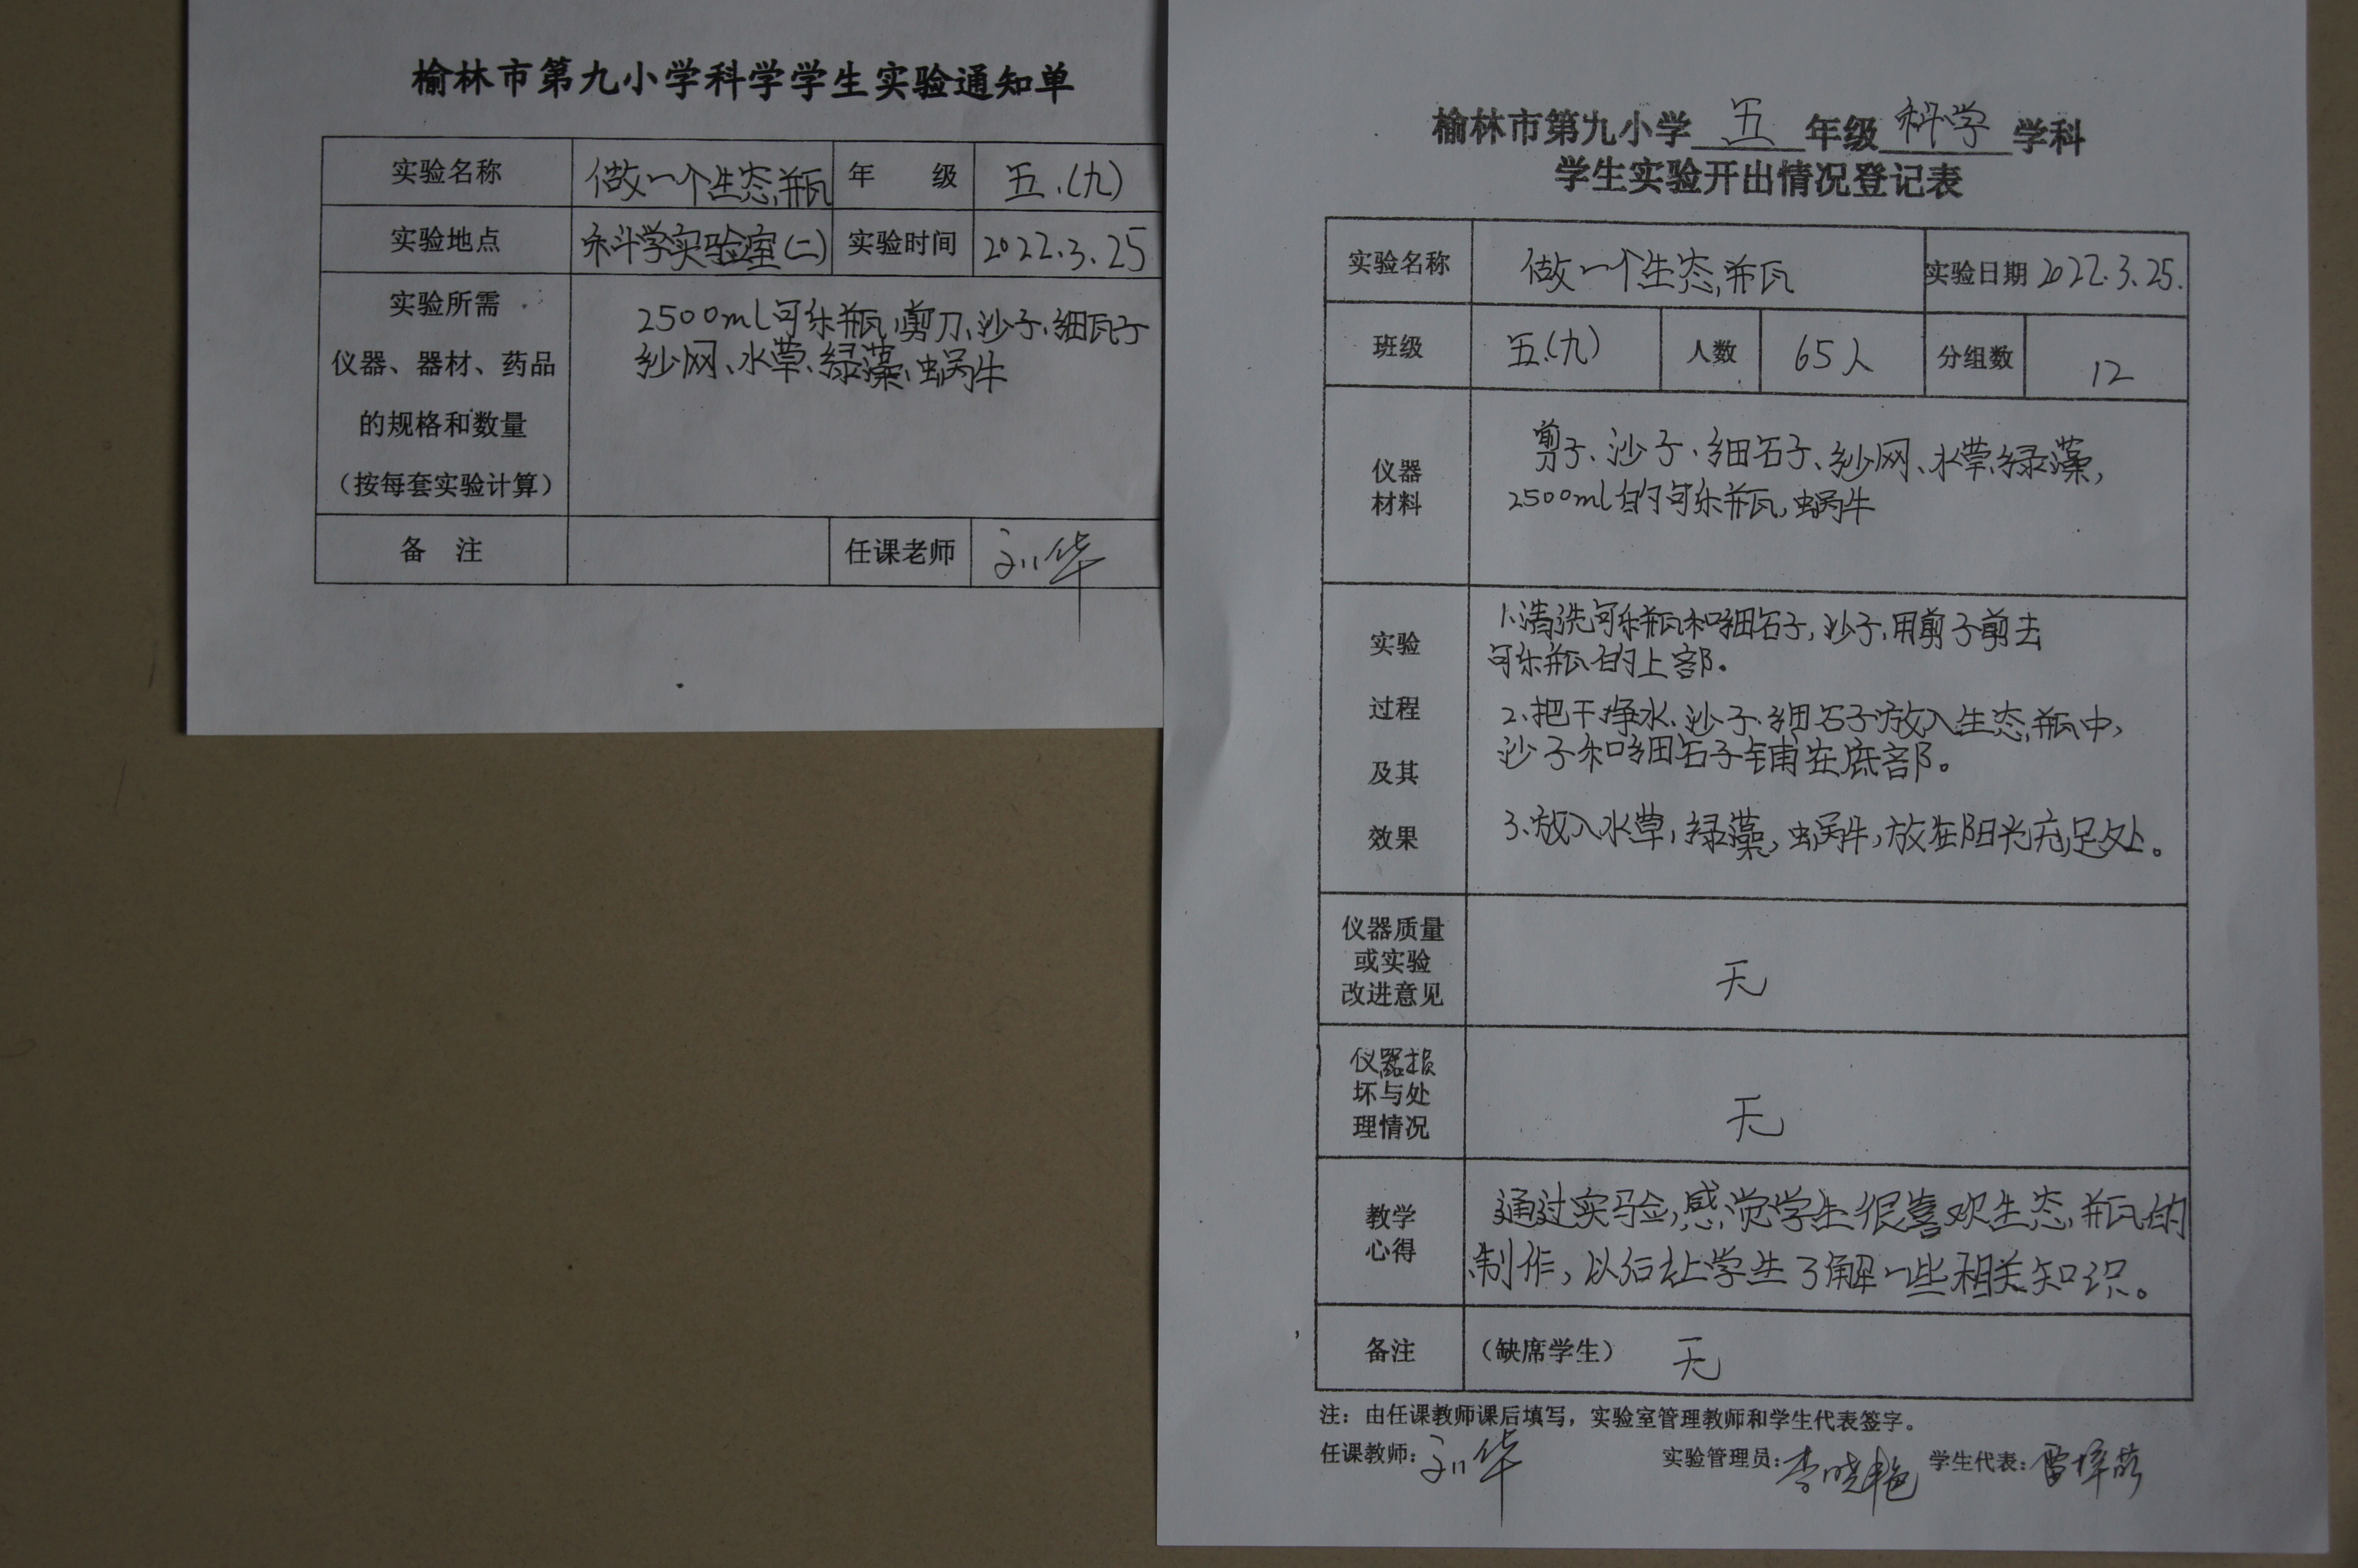 榆林市第九小学科学学生实验通知单
实验名称 做一个生态瓶 年 级 五.(九)
实验地点 科学实验室(二) 实验时间 2022.3.25
实验所需
仪器、器材、药品
的规格和数量
（按每套实验计算）
2500ml可乐瓶、剪刀、沙子、细瓦子
纱网、水草、绿藻、蜗牛
备 注 任课老师 刘华
榆林市第九小学 五 年级 科学 学科
学生实验开出情况登记表
实验名称 做一个生态瓶 实验日期 2022.3.25.
班级 五.(九) 人数 65人 分组数 12
仪器
材料
剪子、沙子、细石子、纱网、水草、绿藻,
2500ml的可乐瓶,蜗牛
实验
过程
及其
效果
1.清洗可乐瓶和细石子,沙子,用剪子剪去
可乐瓶的上部。
2.把干净水、沙子、细石子放入生态瓶中,
沙子和细石子铺在底部。
3.放入水草,绿藻,蜗牛,放在阳光充足处。
仪器质量
或实验
改进意见
无
仪器损
坏与处
理情况
无
教学
心得
通过实验,感觉学生很喜欢生态瓶的
制作,以后让学生了解一些相关知识。
备注 （缺席学生） 无
注：由任课教师课后填写，实验室管理教师和学生代表签字。
任课教师：刘华 实验管理员：李晓艳 学生代表：雷